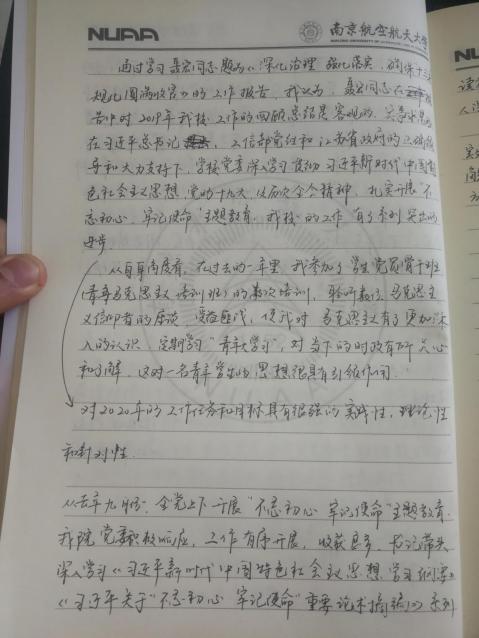 NUAA
南京航空航天大学
通过学习聂宏同志题为《深化治理 强化落实 确保十三五
规划圆满收官》的工作报告,我认为:聂宏同志在报
告中对2019年我校工作的回顾总结是客观的、实事求是的
在习近平总书记 工信部党组和江苏省政府的正确领
导和大力支持下,学校党委深入学习贯彻习近平新时代中国特
色社会主义思想,党的十九大及历次全会精神,扎实开展"不
忘初心、牢记使命"主题教育,我校的工作有了系列突出的
进步
从自身角度看,在过去的一年里,我参加了学生党员骨干班
(青年马克思主义培训班)的数次培训,聆听数位马克思主
义信仰者的座谈,受益匪浅,使我对马克思主义有了更加深
入的认识,定期学习"青年大学习",对当下的时政有所关心
和了解,这对一名青年学生的思想很具有引领作用.
对2020年的工作任务和目标具有很强的实践性,理论性
和针对性.
从去年九月份,全党上下开展"不忘初心 牢记使命"主题教育.
我院党委积极响应,工作有序开展,收获良多,书记带头
深入学习《习近平新时代中国特色社会主义思想学习纲要》
《习近平关于"不忘初心 牢记使命"重要论述摘编》的系列